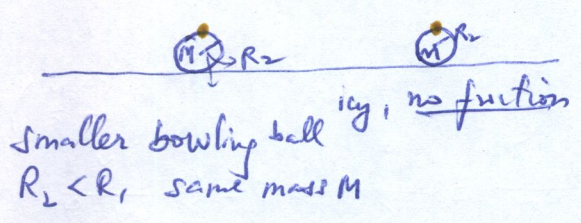 M R2 M R2
icy, no friction
smaller bowling ball
R2 < R1 same mass M